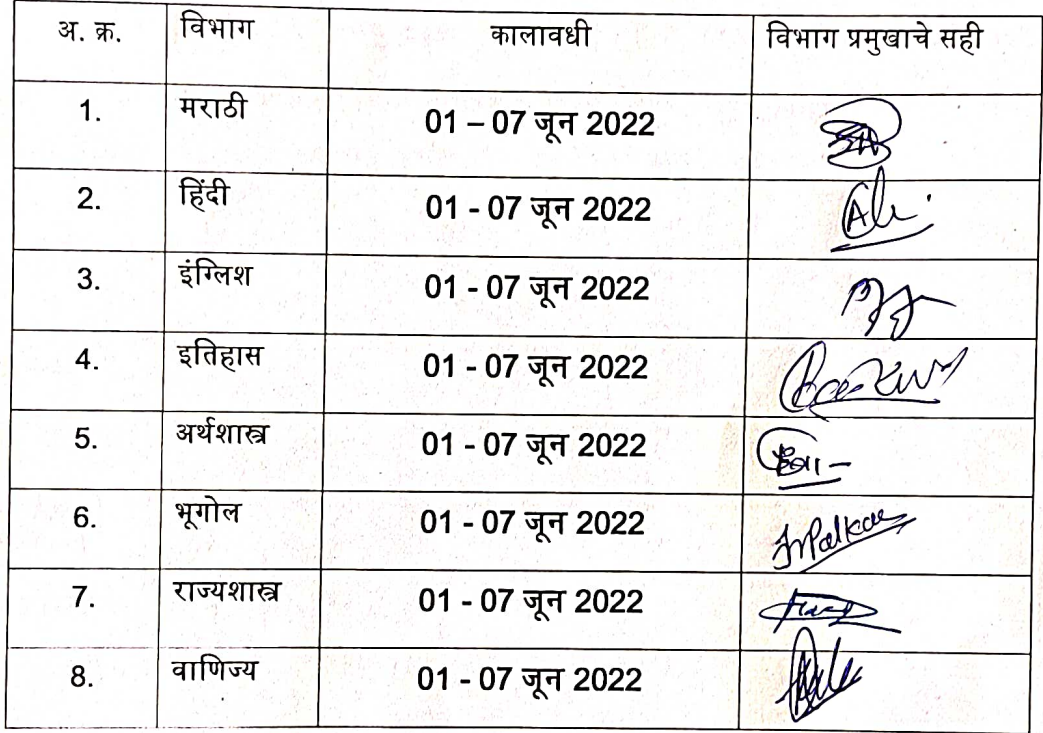 अ. क्र. विभाग कालावधी विभाग प्रमुखाचे सही
1. मराठी 01 – 07 जून 2022
2. हिंदी 01 - 07 जून 2022
3. इंग्लिश 01 - 07 जून 2022
4. इतिहास 01 - 07 जून 2022
5. अर्थशास्त्र 01 - 07 जून 2022
6. भूगोल 01 - 07 जून 2022
7. राज्यशास्त्र 01 - 07 जून 2022
8. वाणिज्य 01 - 07 जून 2022